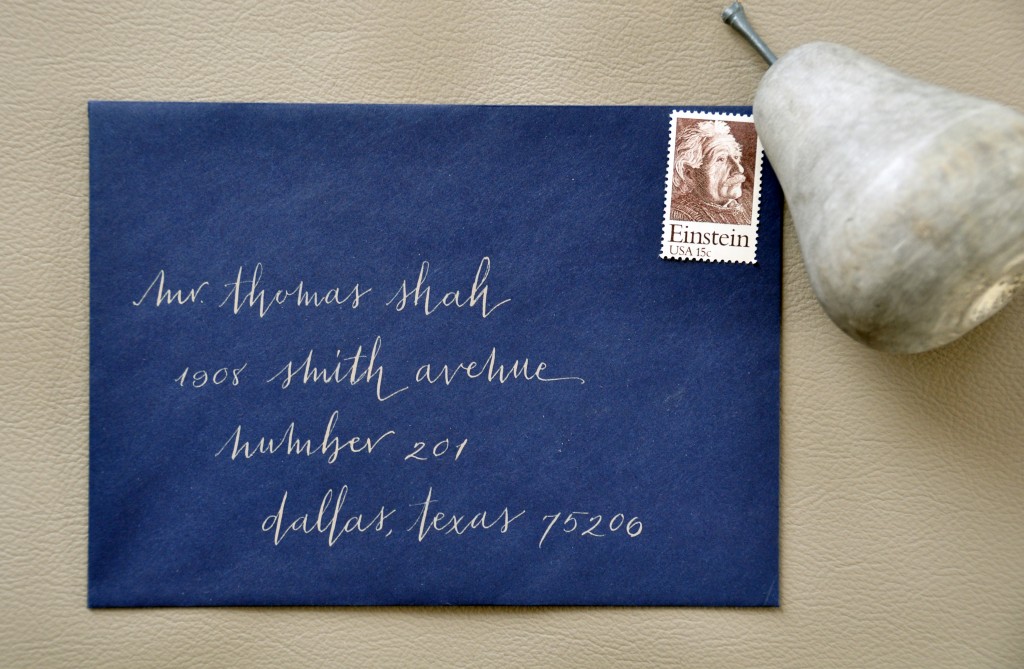 Einstein
USA 15c
mr. thomas shah
1908 smith avenue
number 201
dallas, texas 75206